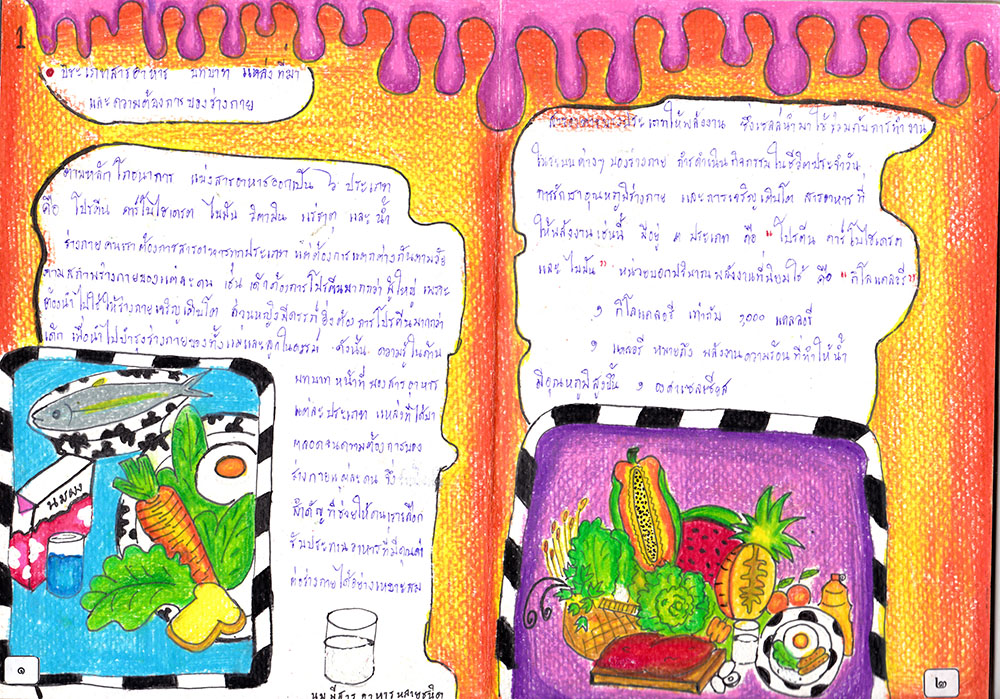 1
ประเภทสารอาหาร บทบาท แหล่งที่มา
และความต้องการของร่างกาย
ตามหลักโภชนาการ แบ่งสารอาหารออกเป็น ๖ ประเภท
คือ โปรตีน คาร์โบไฮเดรต ไขมัน วิตามิน แร่ธาตุ และ น้ำ
ร่างกายคนเราต้องการสารอาหารทุกประเภท แต่ต้องการแตกต่างกันตามวัย
ตามสภาพร่างกายของแต่ละคน เช่น เด็กต้องการโปรตีนมากกว่าผู้ใหญ่ เพราะ
ต้องนำไปใช้ให้ร่างกายเจริญเติบโต ส่วนหญิงมีครรภ์ยิ่งต้องการโปรตีนมากกว่า
เด็ก เพื่อนำไปบำรุงร่างกายของทั้งแม่และลูกในครรภ์ ดังนั้น ความรู้ในด้าน
บทบาท หน้าที่ของสารอาหาร
แต่ละประเภท แหล่งที่ได้มา
ตลอดจนความต้องการของ
ร่างกายแต่ละคน จึง
สำคัญที่ช่วยให้คนเราเลือก
รับประทานอาหารที่มีคุณค่า
ต่อร่างกายได้อย่างเหมาะสม
นมผง
นมมีสารอาหารหลายชนิด
๑
ประเภทให้พลังงาน ซึ่งเซลล์นำมาใช้ร่วมกับการทำงาน
ในระบบต่างๆ ของร่างกาย การดำเนินกิจกรรมในชีวิตประจำวัน
การรักษาอุณหภูมิร่างกาย และการเจริญเติบโต สารอาหารที่
ให้พลังงานเช่นนี้ มีอยู่ ๓ ประเภท คือ "โปรตีน คาร์โบไฮเดรต
และ ไขมัน" หน่วยบอกปริมาณพลังงานที่นิยมใช้ คือ "กิโลแคลอรี"
๑ กิโลแคลอรี เท่ากับ ๑,๐๐๐ แคลอรี
๑ แคลอรี หมายถึง พลังงานความร้อนที่ทำให้น้ำ
มีอุณหภูมิสูงขึ้น ๑ องศาเซลเซียส
๒